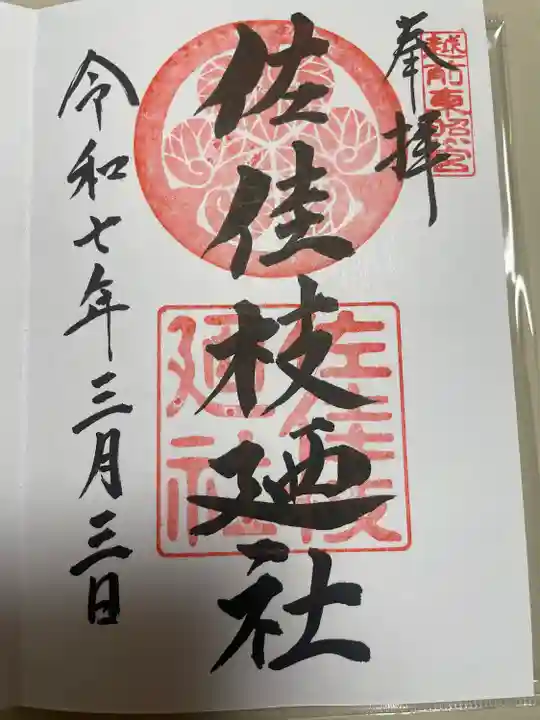 越前東照宮
奉拝
佐佳枝廼社
佐佳枝
廼社
令和七年三月三日